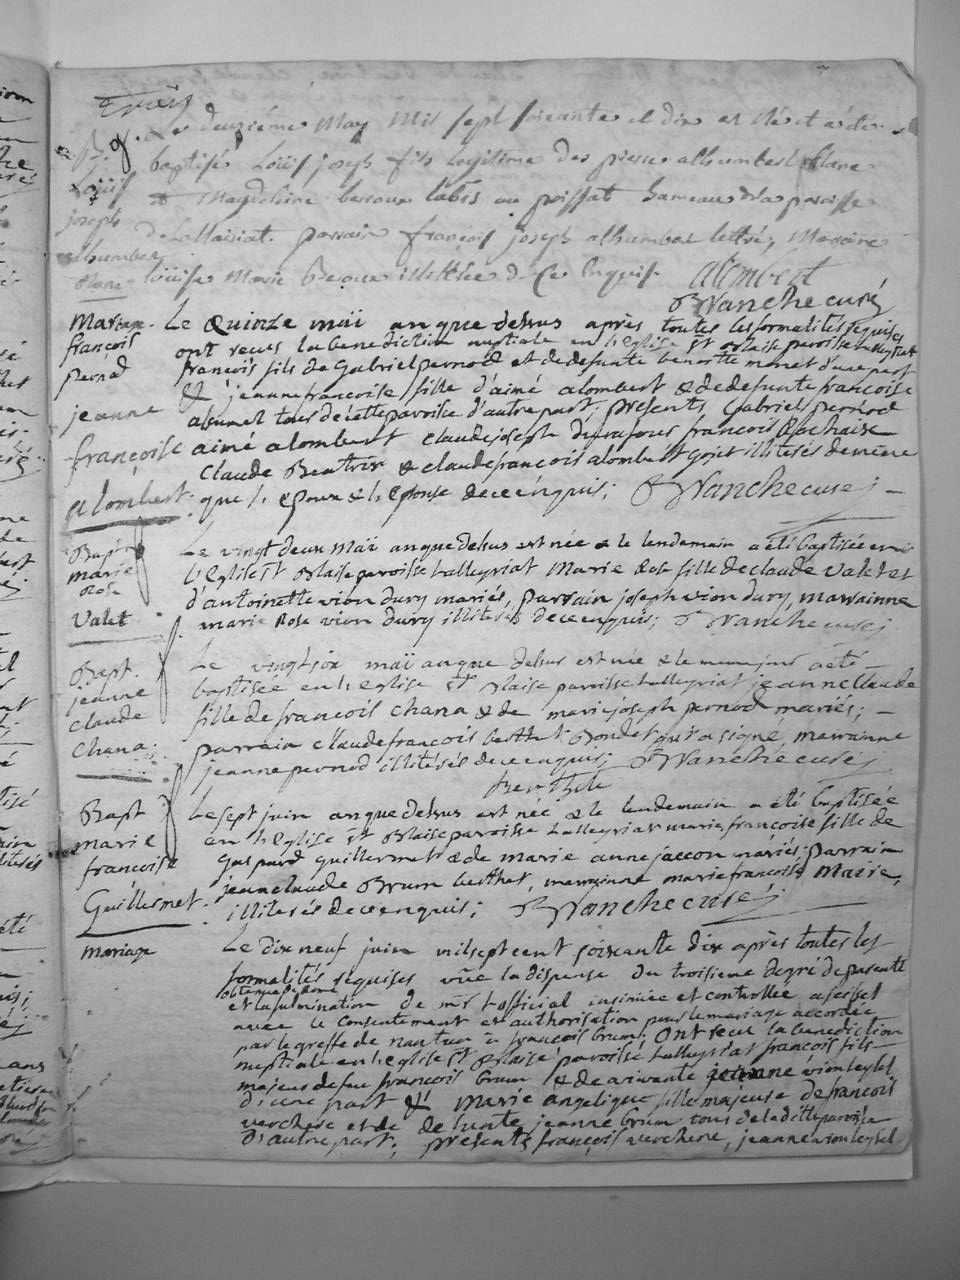 Le deuxiéme May Mil sept soixante et dix est né et a été
Louis baptisé Louis joseph fils legitime des pierre alhumbert blanc
joseph et Magdeleine beroux labis au poissat hameau de la paroisse
alhumbert de Lallairiat. parrain françois joseph alhumbert lettré, Maraine
blanc louise Marie Beroux illettrée de Ce Enquis. alombert
Blanche curé
Mariage. Le Quinze maï an que dessus après toutes les formalités requises
françois ont reçus la benediction nuptiale en l'Eglise St Blaise paroisse talleyriat
pernod françois fils de Gabriel pernod et de defunte benoitte monet d'une part
jeanne & jeanne francoise fille d'aimé alombert & de defunte francoise
abumet tous de cette paroise d'autre part; presents Gabriel pernod
françoise aimé alombert Claude joseph durafour francois Rochaise
Claude Beatrix & claude francois alombert gojet illiterés de meme
alombert: que l'Epoux & l'Epouse de ce enquis; Blanche curé; —
Bapt Le vingt deux maï an que dessus est née & le lendemain a été baptisée en
marie l'Eglise St Blaise paroisse talleyriat Marie Rose fille de claude Valet et
Rose d'antoinette vion dury mariés, parrain joseph vion dury, marrainne
Valet marie Rose vion dury illiterés de ce enquis; Blanche curé;
Bapt. Le vingt six maï an que dessus est née & le meme jour a été —
jeanne baptisée en l'Eglise St Blaise paroisse talleyriat jeanne Claude
claude fille de francois Chana & de marie joseph pernod mariés; —
Chana; parrain Claude francois berthet Bondet qui a signé, marrainne
jeanne pernod illiterés de ce enquis; Blanche curé;
Berthet
Bapt Le sept juin an que dessus est née & le lendemain a été baptisée
marie en l'Eglise St Blaise paroisse talleyriat marie françoise fille de
francoise Gaspard guillermet & de marie anne jaccon mariés; parrain
jean claude Brum berthet, marrainne marie francoise Maire,
Guillermet. illiterés de ce enquis; Blanche curé;
Mariage Le dix neuf juin mil sept cent soixante dix après toutes les
formalités requises vüe la dispense du troisieme degré de parenté
obtenue de Rome
et la fulmination de mr l'official insinuée et controllée a feissel
avec le Consentement et authorisation pour le mariage accordée
par le greffe de nantua a françois brum; Ont reçu la benediction
nuptiale en l'Eglise St Blaise paroisse talleyriat francois fils —
majeur de feu francois brum & de a vivante jeanne vion leysel
d'une part & marie angelique fille majeuse de francois
verchere et de defunte jeanne brum tous de la ditte paroisse
d'autre part; presents françois verchere, jeanne vion leysel